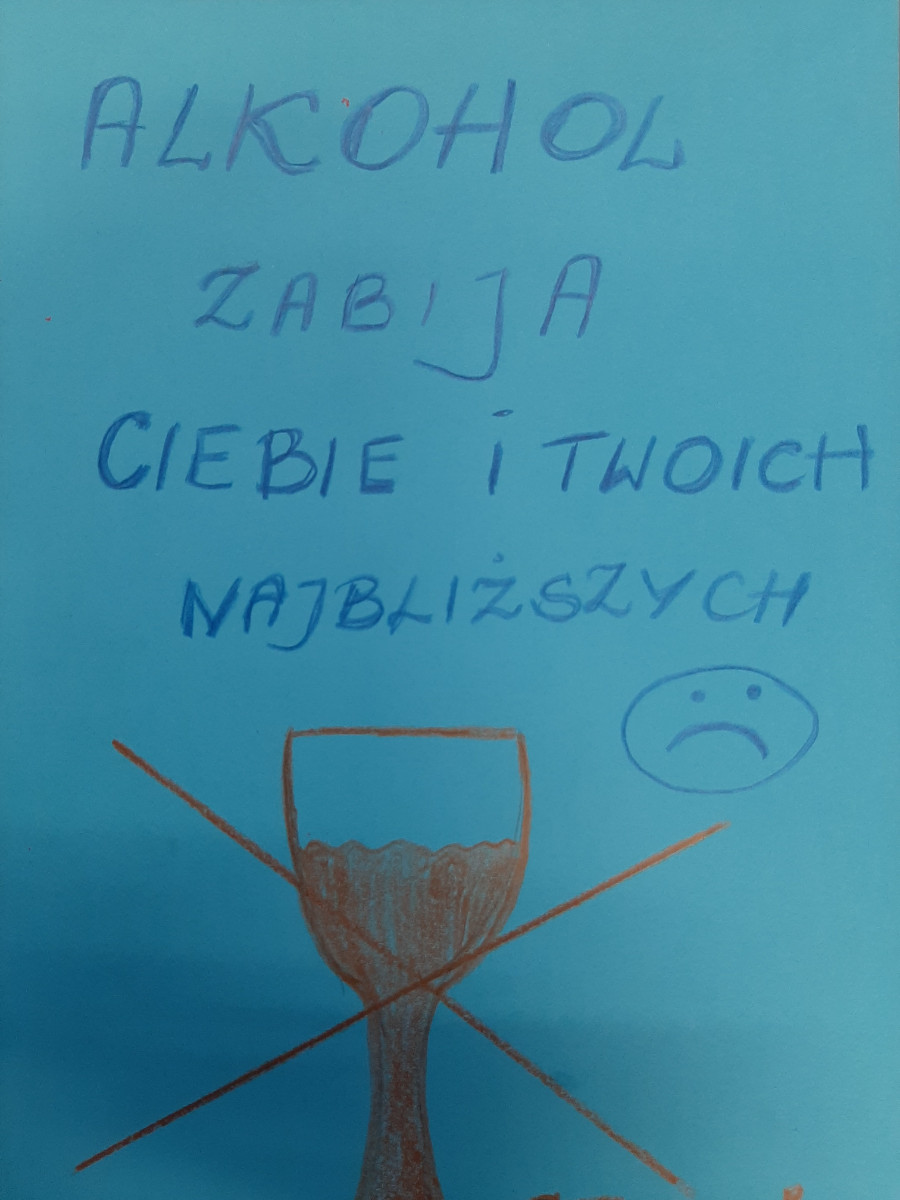 ALKOHOL
ZABIJA
CIEBIE i TWOICH
NAJBLIŻSZYCH